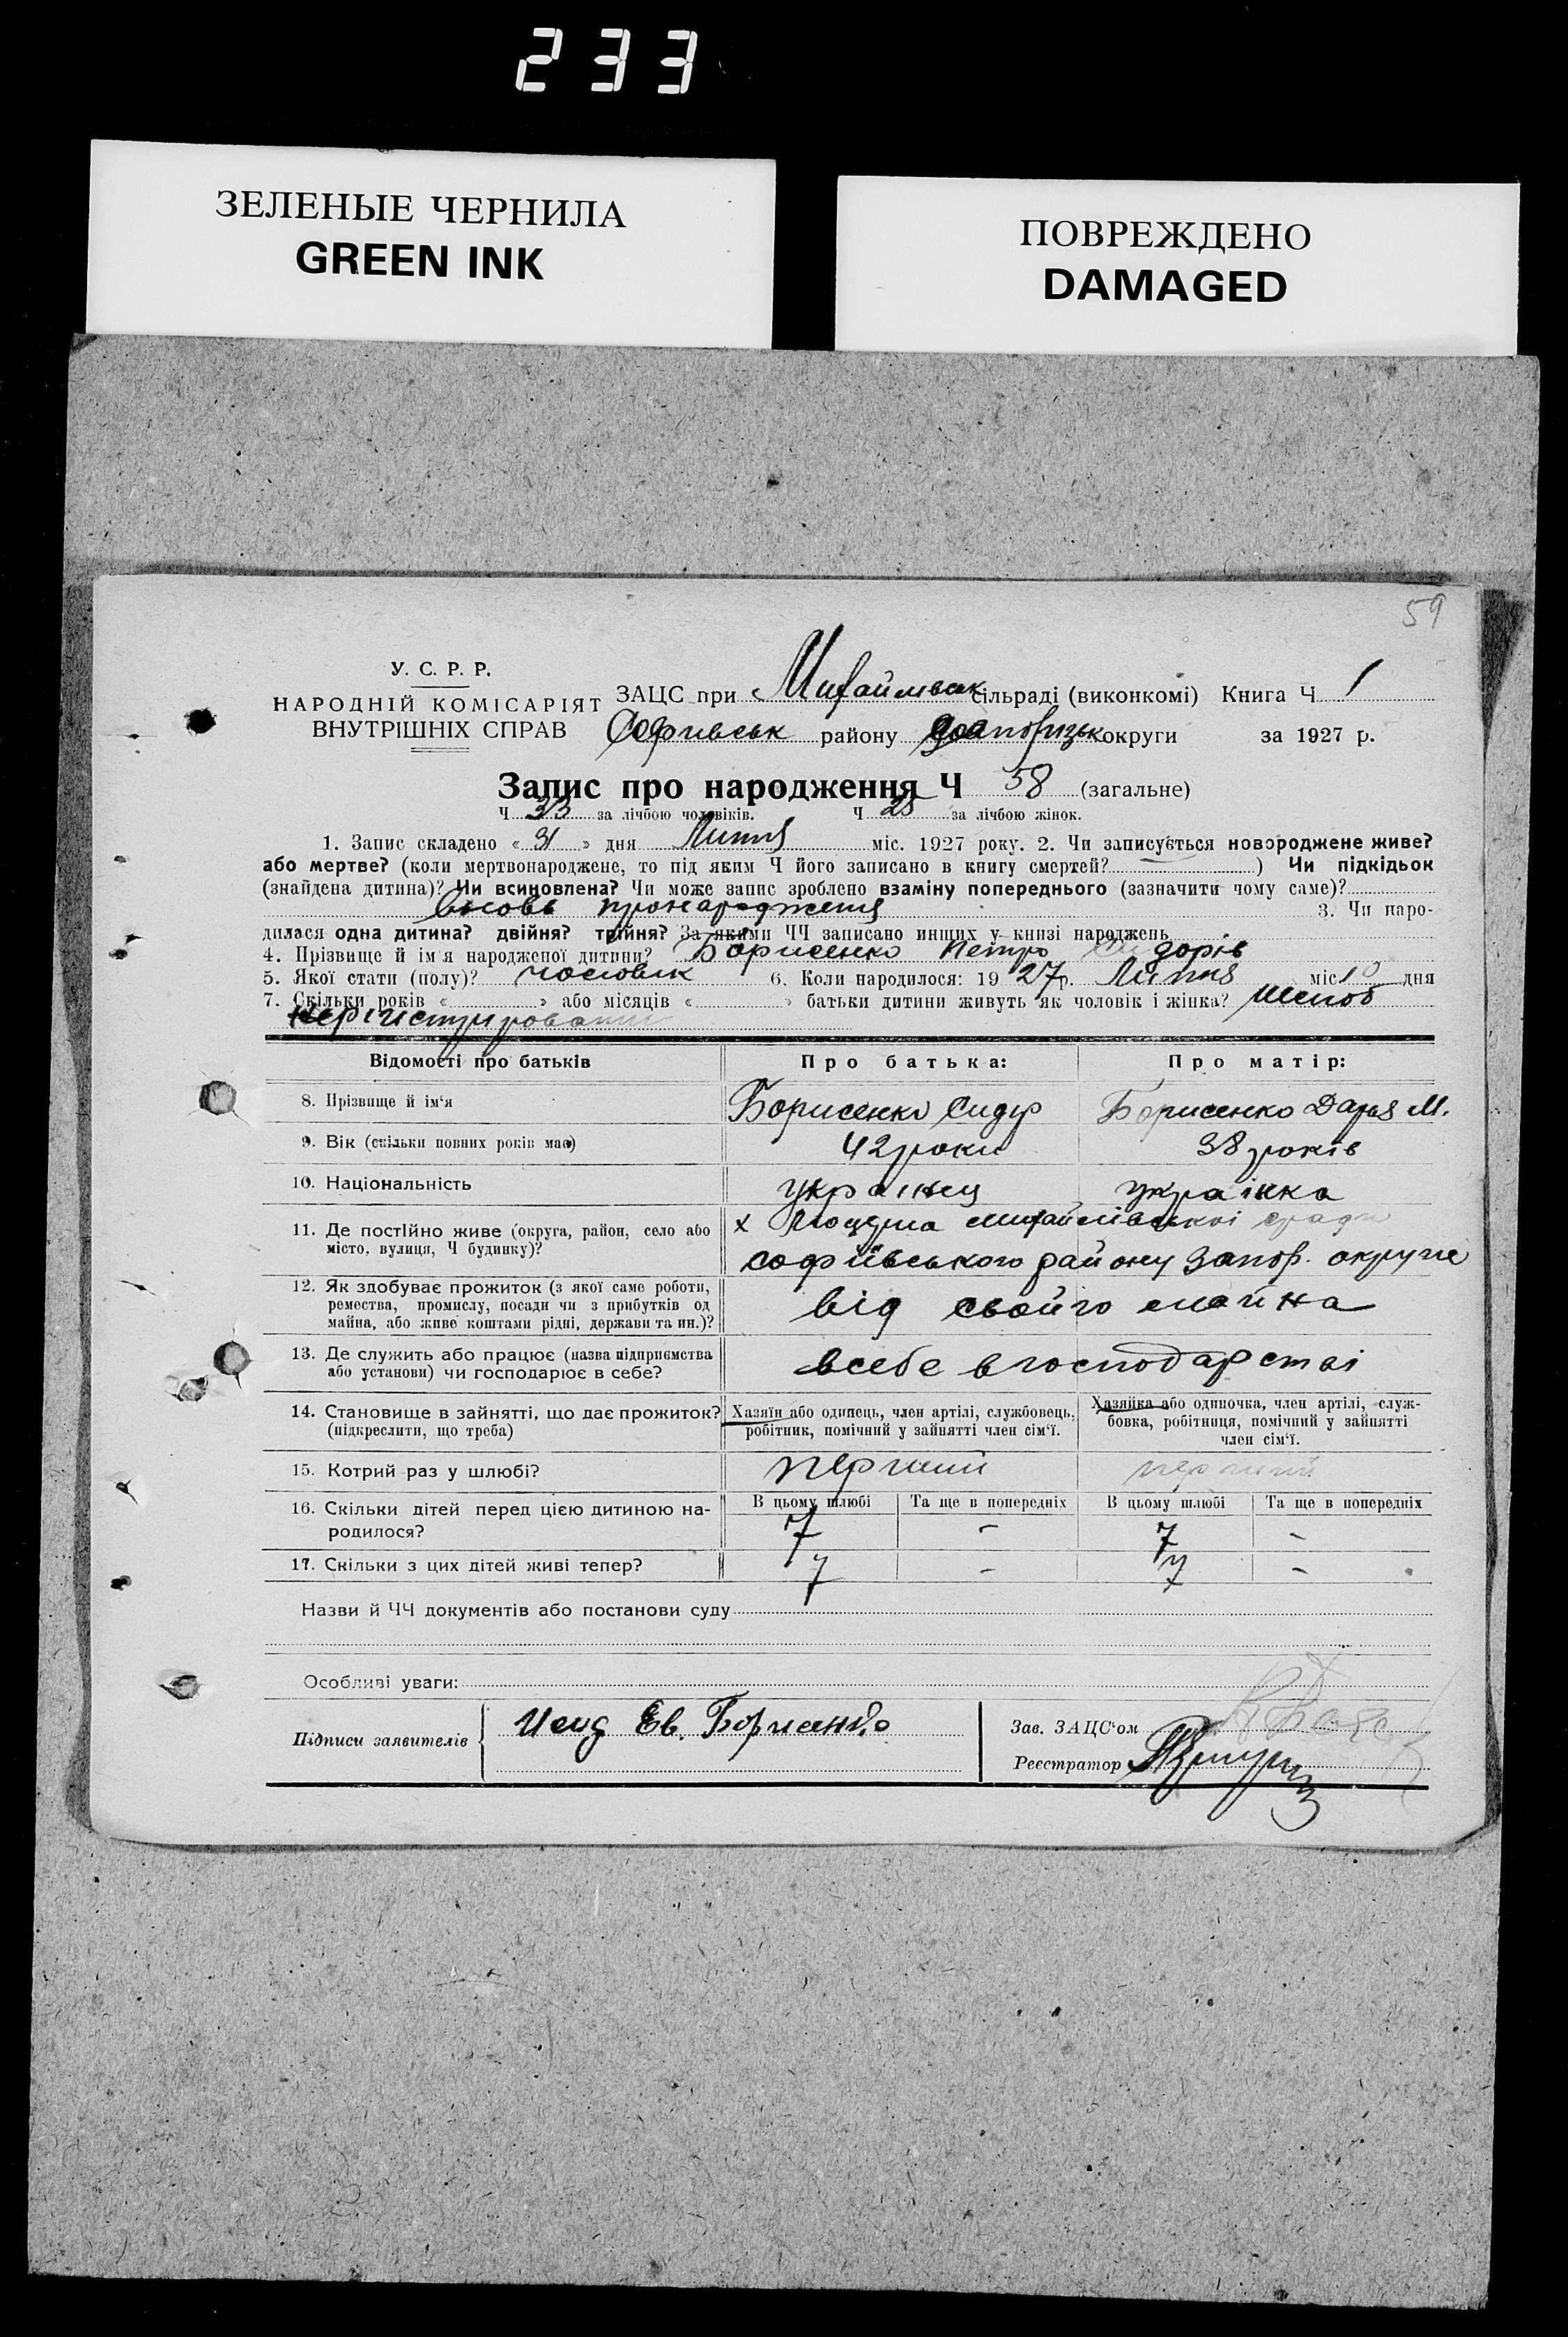 233
ЗЕЛЕНЫЕ ЧЕРНИЛА
GREEN INK
ПОВРЕЖДЕНО
DAMAGED
59
У. С. Р. Р.
НАРОДНІЙ КОМІСАРІЯТ
ВНУТРІШНІХ СПРАВ
ЗАЦС при Михайлівськ сільраді (виконкомі) Книга Ч 1
Софивськ району Запорізьк округи за 1927 р.
Запис про народження Ч 58 (загальне)
Ч 33 за лічбою чоловіків. Ч 25 за лічбою жінок.
1. Запис складено « 31 » дня Липня міс. 1927 року. 2. Чи записується новороджене живе?
або мертве? (коли мертвонароджене, то під яким Ч його записано в книгу смертей? ) Чи підкідьок
(знайдена дитина)? Чи всиновлена? Чи може запис зроблено взаміну попереднього (зазначити чому саме)?
вновь пронародження 3. Чи наро-
дилася одна дитина? двійня? трійня? За якими ЧЧ записано инших у книзі народжень
4. Прізвище й ім'я народженої дитини? Борисенко Петро Сидорів
5. Якої стати (полу)? чоловік 6. Коли народилося: 19 27 р. Липня міс 10 дня
7. Скільки років « » або місяців « » батьки дитини живуть як чоловік і жінка? Шлюб
Відомості про батьків Про батька: Про матір:
8. Прізвище й ім'я Борисенко Сидр Борисенко Дарья М.
9. Вік (скільки повних років має) 42 роки 38 років
10. Національність украінец украінка
11. Де постійно живе (округа, район, село або місто, вулиця, Ч будинку)? х Михайлівської сради
софиївського району Запор. округи
12. Як здобуває прожиток (з якої саме роботи, ремества, промислу, посади чи з прибутків од майна, або живе коштами рідні, держави та ин.)? від свойго майна
13. Де служить або працює (назва підприємства або установи) чи господарює в себе? всебе в господарстві
14. Становище в зайнятті, що дає прожиток? (підкреслити, що треба) Хазяїн або одинець, член артілі, службовець, робітник, помічний у зайнятті член сім'ї. Хазяйка або одиночка, член артілі, служ-бовка, робітниця, помічний у зайнятті член сім'ї.
15. Котрий раз у шлюбі? перший перший
16. Скільки дітей перед цією дитиною на-родилося? В цьому шлюбі Та ще в попередніх В цьому шлюбі Та ще в попередніх
7 - 7 -
17. Скільки з цих дітей живі тепер? 7 - 7 -
Назви й ЧЧ документів або постанови суду
Особливі уваги:
Підписи заявителів Борисенко
Зав. ЗАЦС'ом
Реєстратор